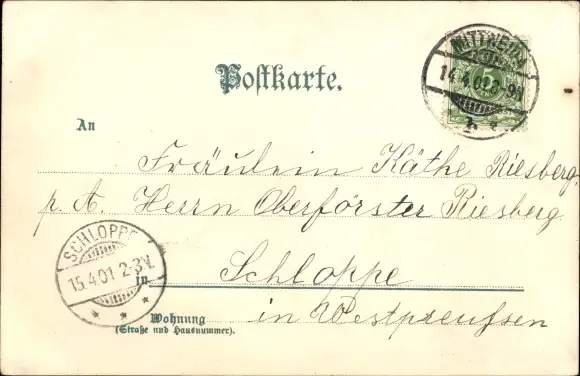 Postkarte.
MITTWEIDA
14.4.01 8-9V.
An
Fräulein Käthe Riesberg
p. A. Herrn Oberförster Riesberg
SCHLOPPE
15.4.01 2-3V.
in Schloppe
in Westpreußen
Wohnung
(Straße und Hausnummer).